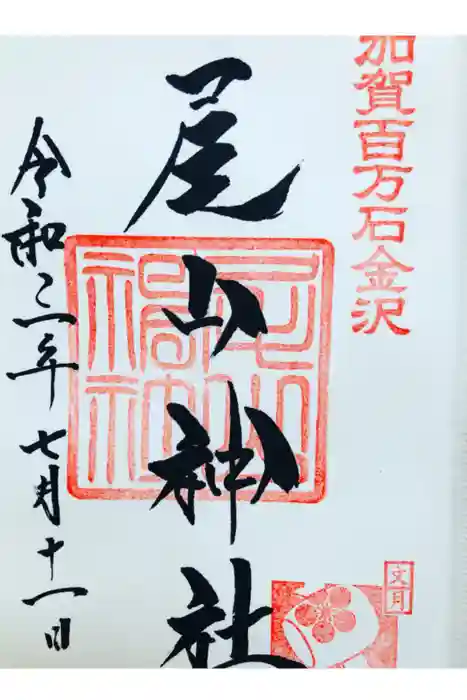 加賀百万石金沢
尾山神社
令和三年七月十一日
文月